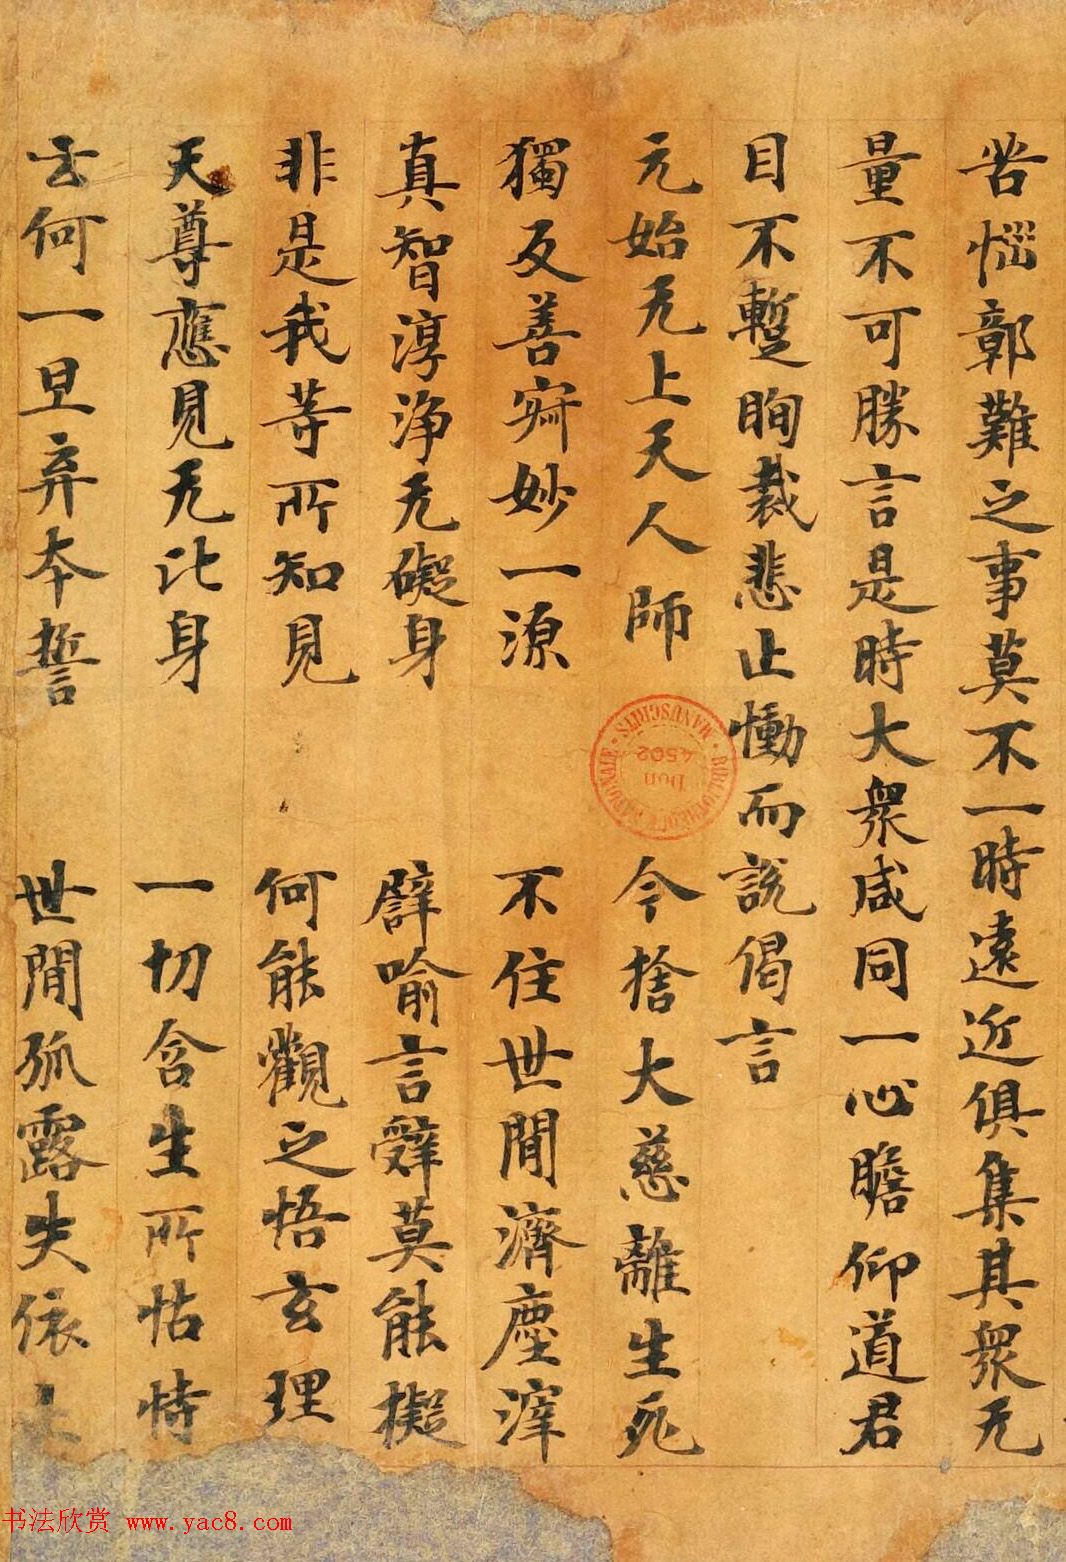 苦惱鄣難之事莫不一時遠近俱集其衆无
量不可勝言是時大衆咸同一心瞻仰道君
目不蹔眴裁悲止慟而說偈言
元始无上天人師 今捨大慈離生死
獨反善㝛妙一源 不住世間濟塵滓
真智淳淨无礙身 譬喻言辭莫能擬
非是我等所知見 何能觀之悟玄理
天尊應見无比身 一切含生所怙恃
云何一旦弃本誓 世間孤露失依
BIBLIOTHEQUE NATIONALE
MANUSCRITS
Don
4502
书法欣赏 www.yac8.com